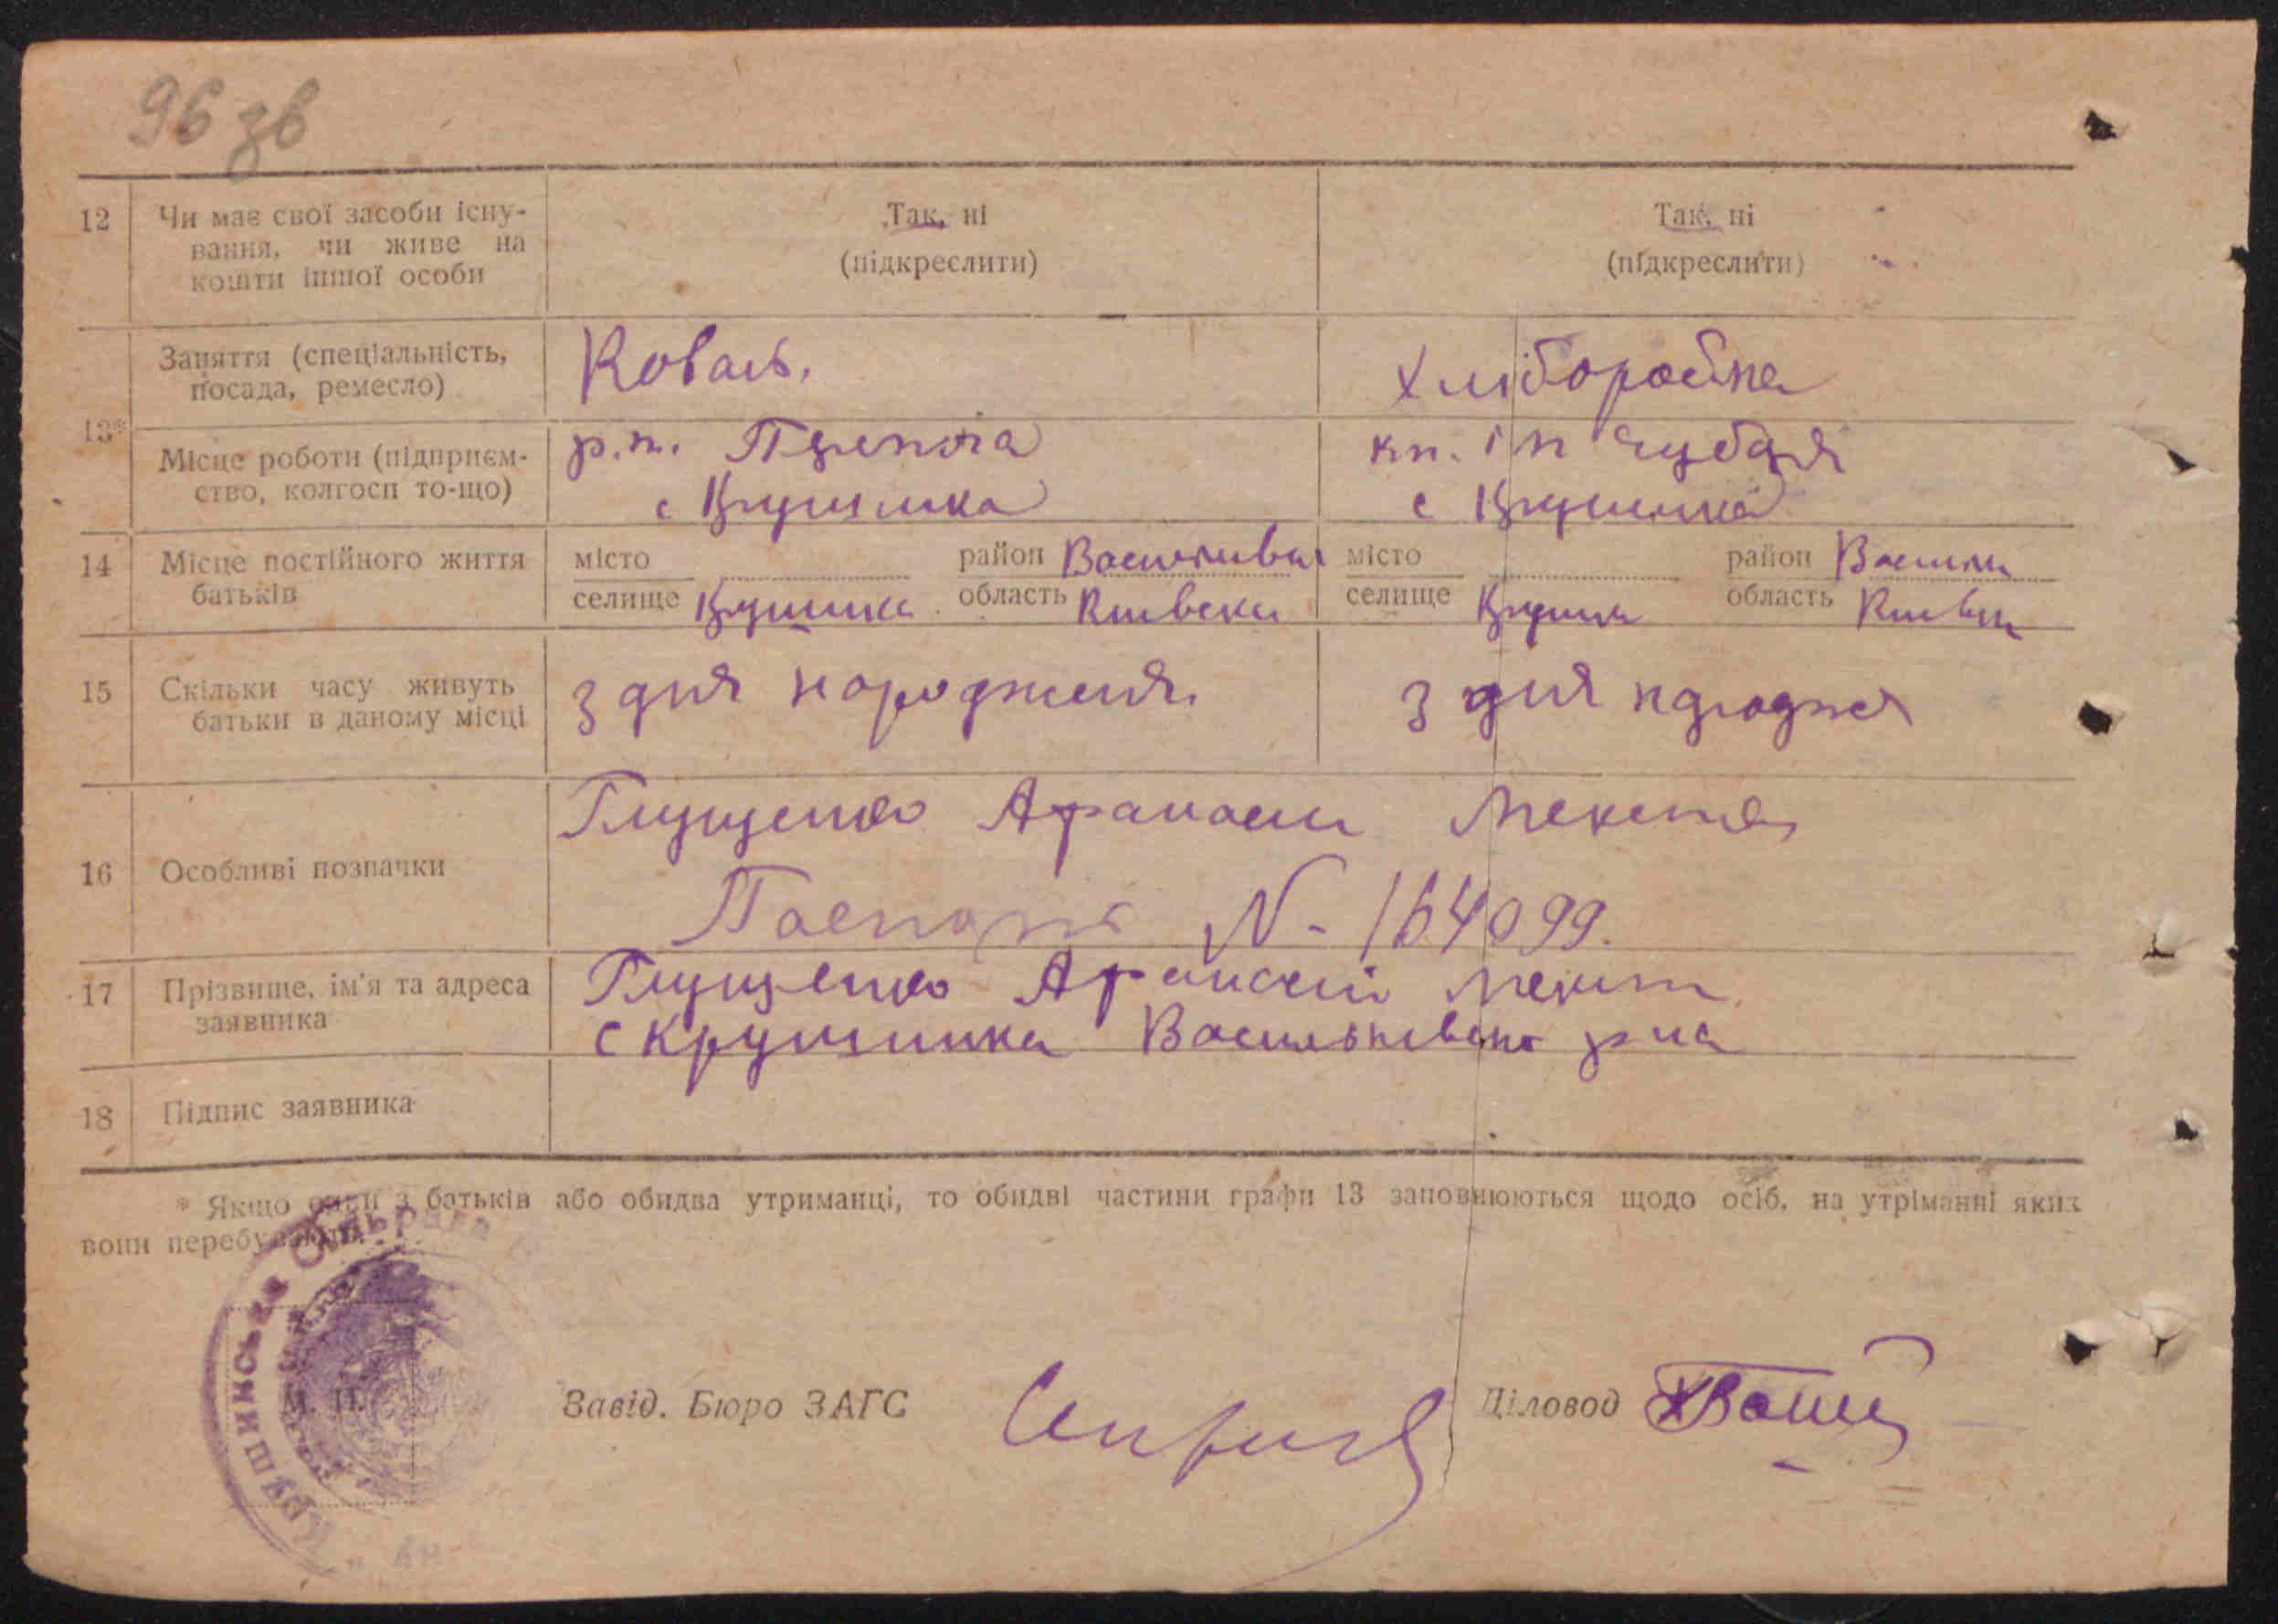 96 зв
12 Чи має свої засоби існу- Так, ні Так, ні
вання, чи живе на
кошти іншої особи (підкреслити) (підкреслити)
Заняття (спеціальність, Коваль. Хліборобка
посада, ремесло)
13*
Місце роботи (підприєм- р.п.
ство, колгосп то-що) с Крушинка с Крушинка
14 Місце постійного життя місто район Васильків місто район Васильк
батьків селище Крушинка область Київська селище Крушин область Київськ
15 Скільки часу живуть з дня народження. з дня
батьки в даному місці
Глущенко Афанасій
16 Особливі позначки
Паспорт N - 164099.
17 Прізвище, ім'я та адреса Глущенко Афанасій
заявника с Крушинка Васильківсько р на
18 Підпис заявника
* Якщо один з батьків або обидва утриманці, то обидві частини графи 13 заповнюються щодо осіб, на утріманні яких
вони перебувають.
Крушинська Сільрада
М. П.
Завід. Бюро ЗАГС Діловод